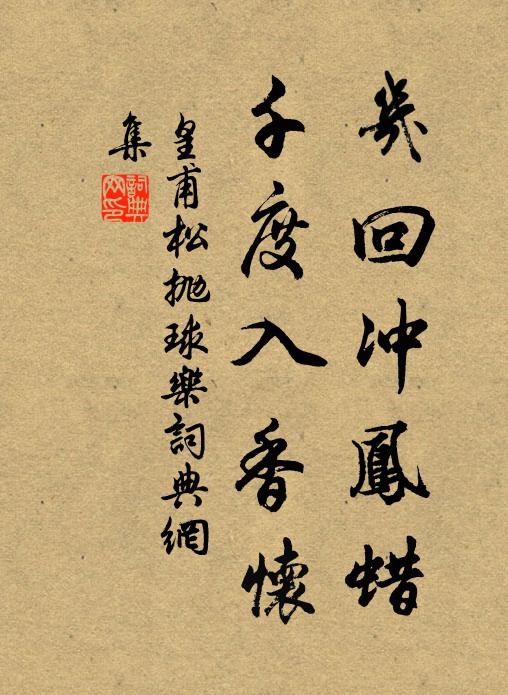 幾回冲鳳蜡
千度入香懷
皇甫松抛球樂詞典網
集
詞典网印